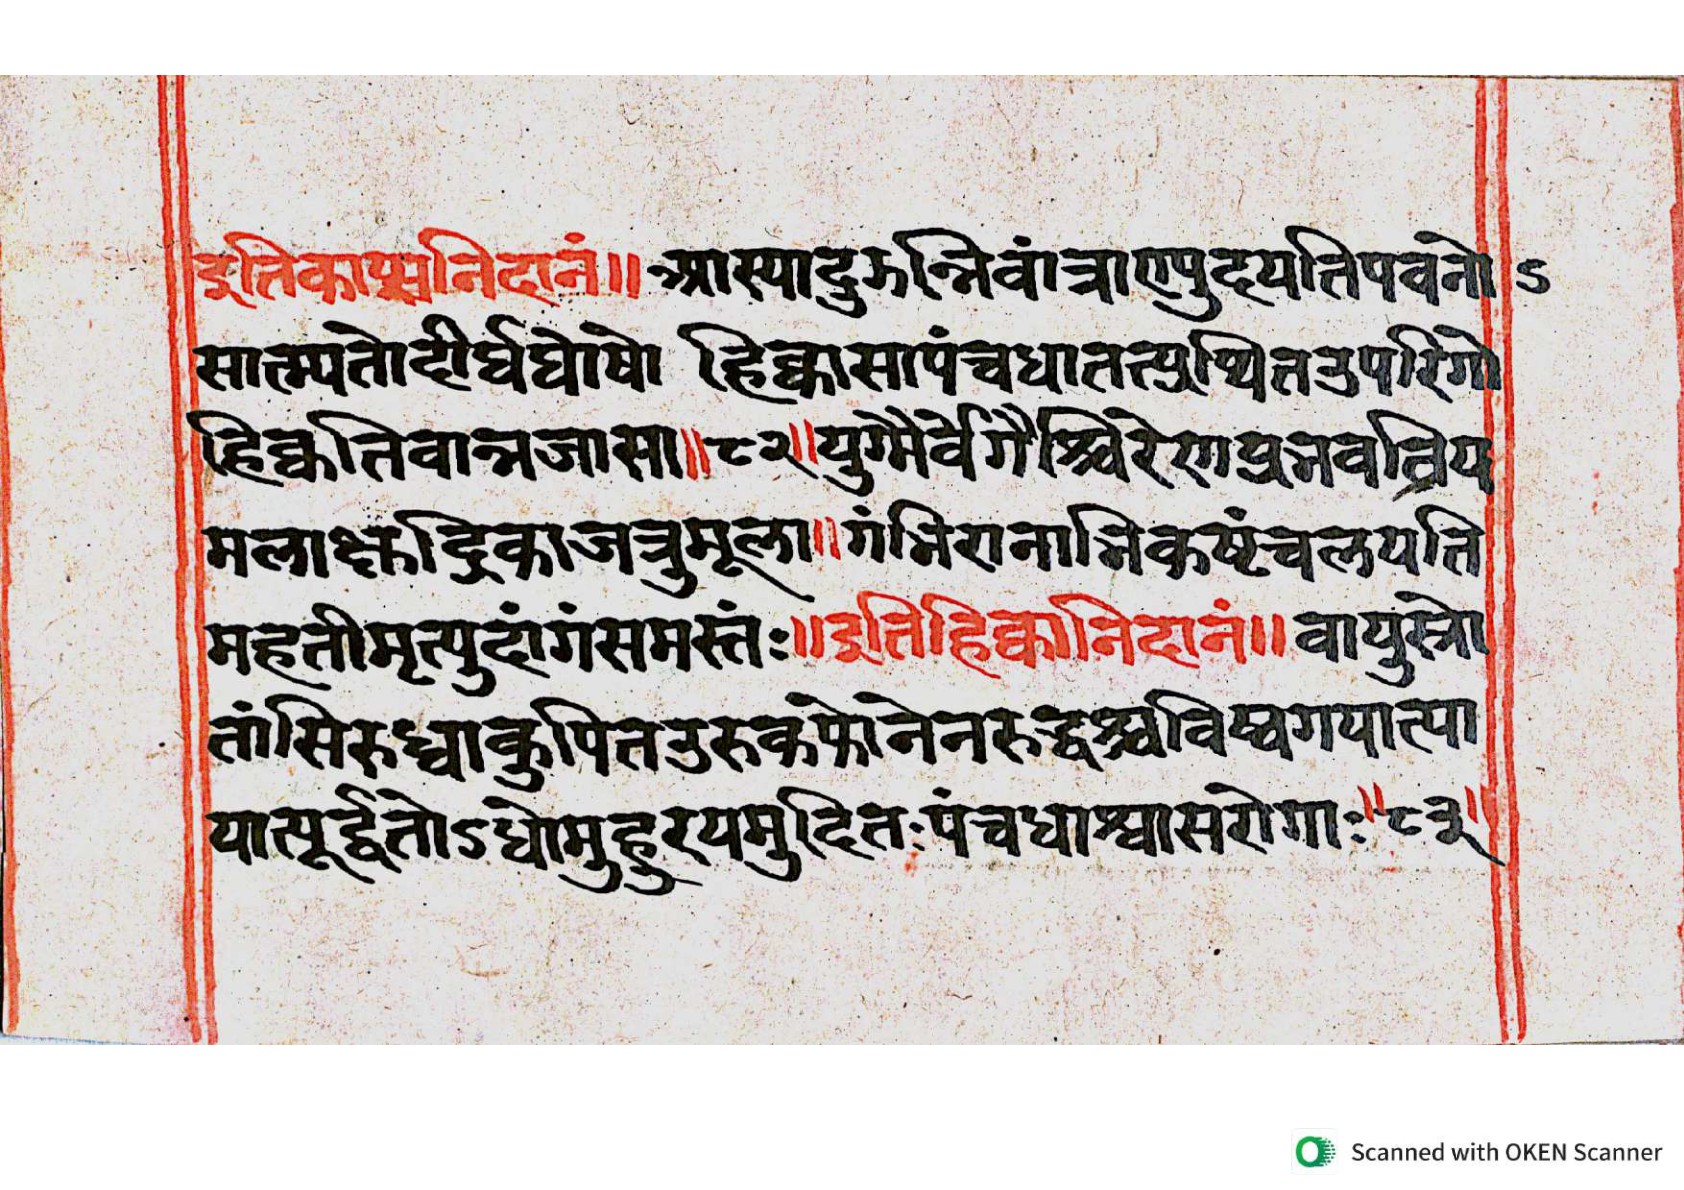 इतिकाससनिदानं॥ आस्यादुऊन्निवांत्राएपुदयतिपवनोऽ
सात्म्यतोदीर्घघोषो हिक्कासापंचधातत्प्युत्थितउपरिगो
हिक्कतिवान्नजासा॥८२॥युग्मैर्वेगैश्चिरेणप्रभवतिय
मलाक्षुद्रिकाजत्रुमूला॥गंभिरानाभिकष्टंचलयति
महतीमृत्युदांगंसमस्तंः॥इतिहिक्कानिदानं॥वायुस्त्रो
तांसिरुध्वाकुपितउरुकफोनेनरुद्धश्चविष्वगयात्या
यात्यूर्द्ध्वतोऽधोमुहुरयमुदितःपंचधाश्वासरोगाः॥८३॥
Scanned with OKEN Scanner